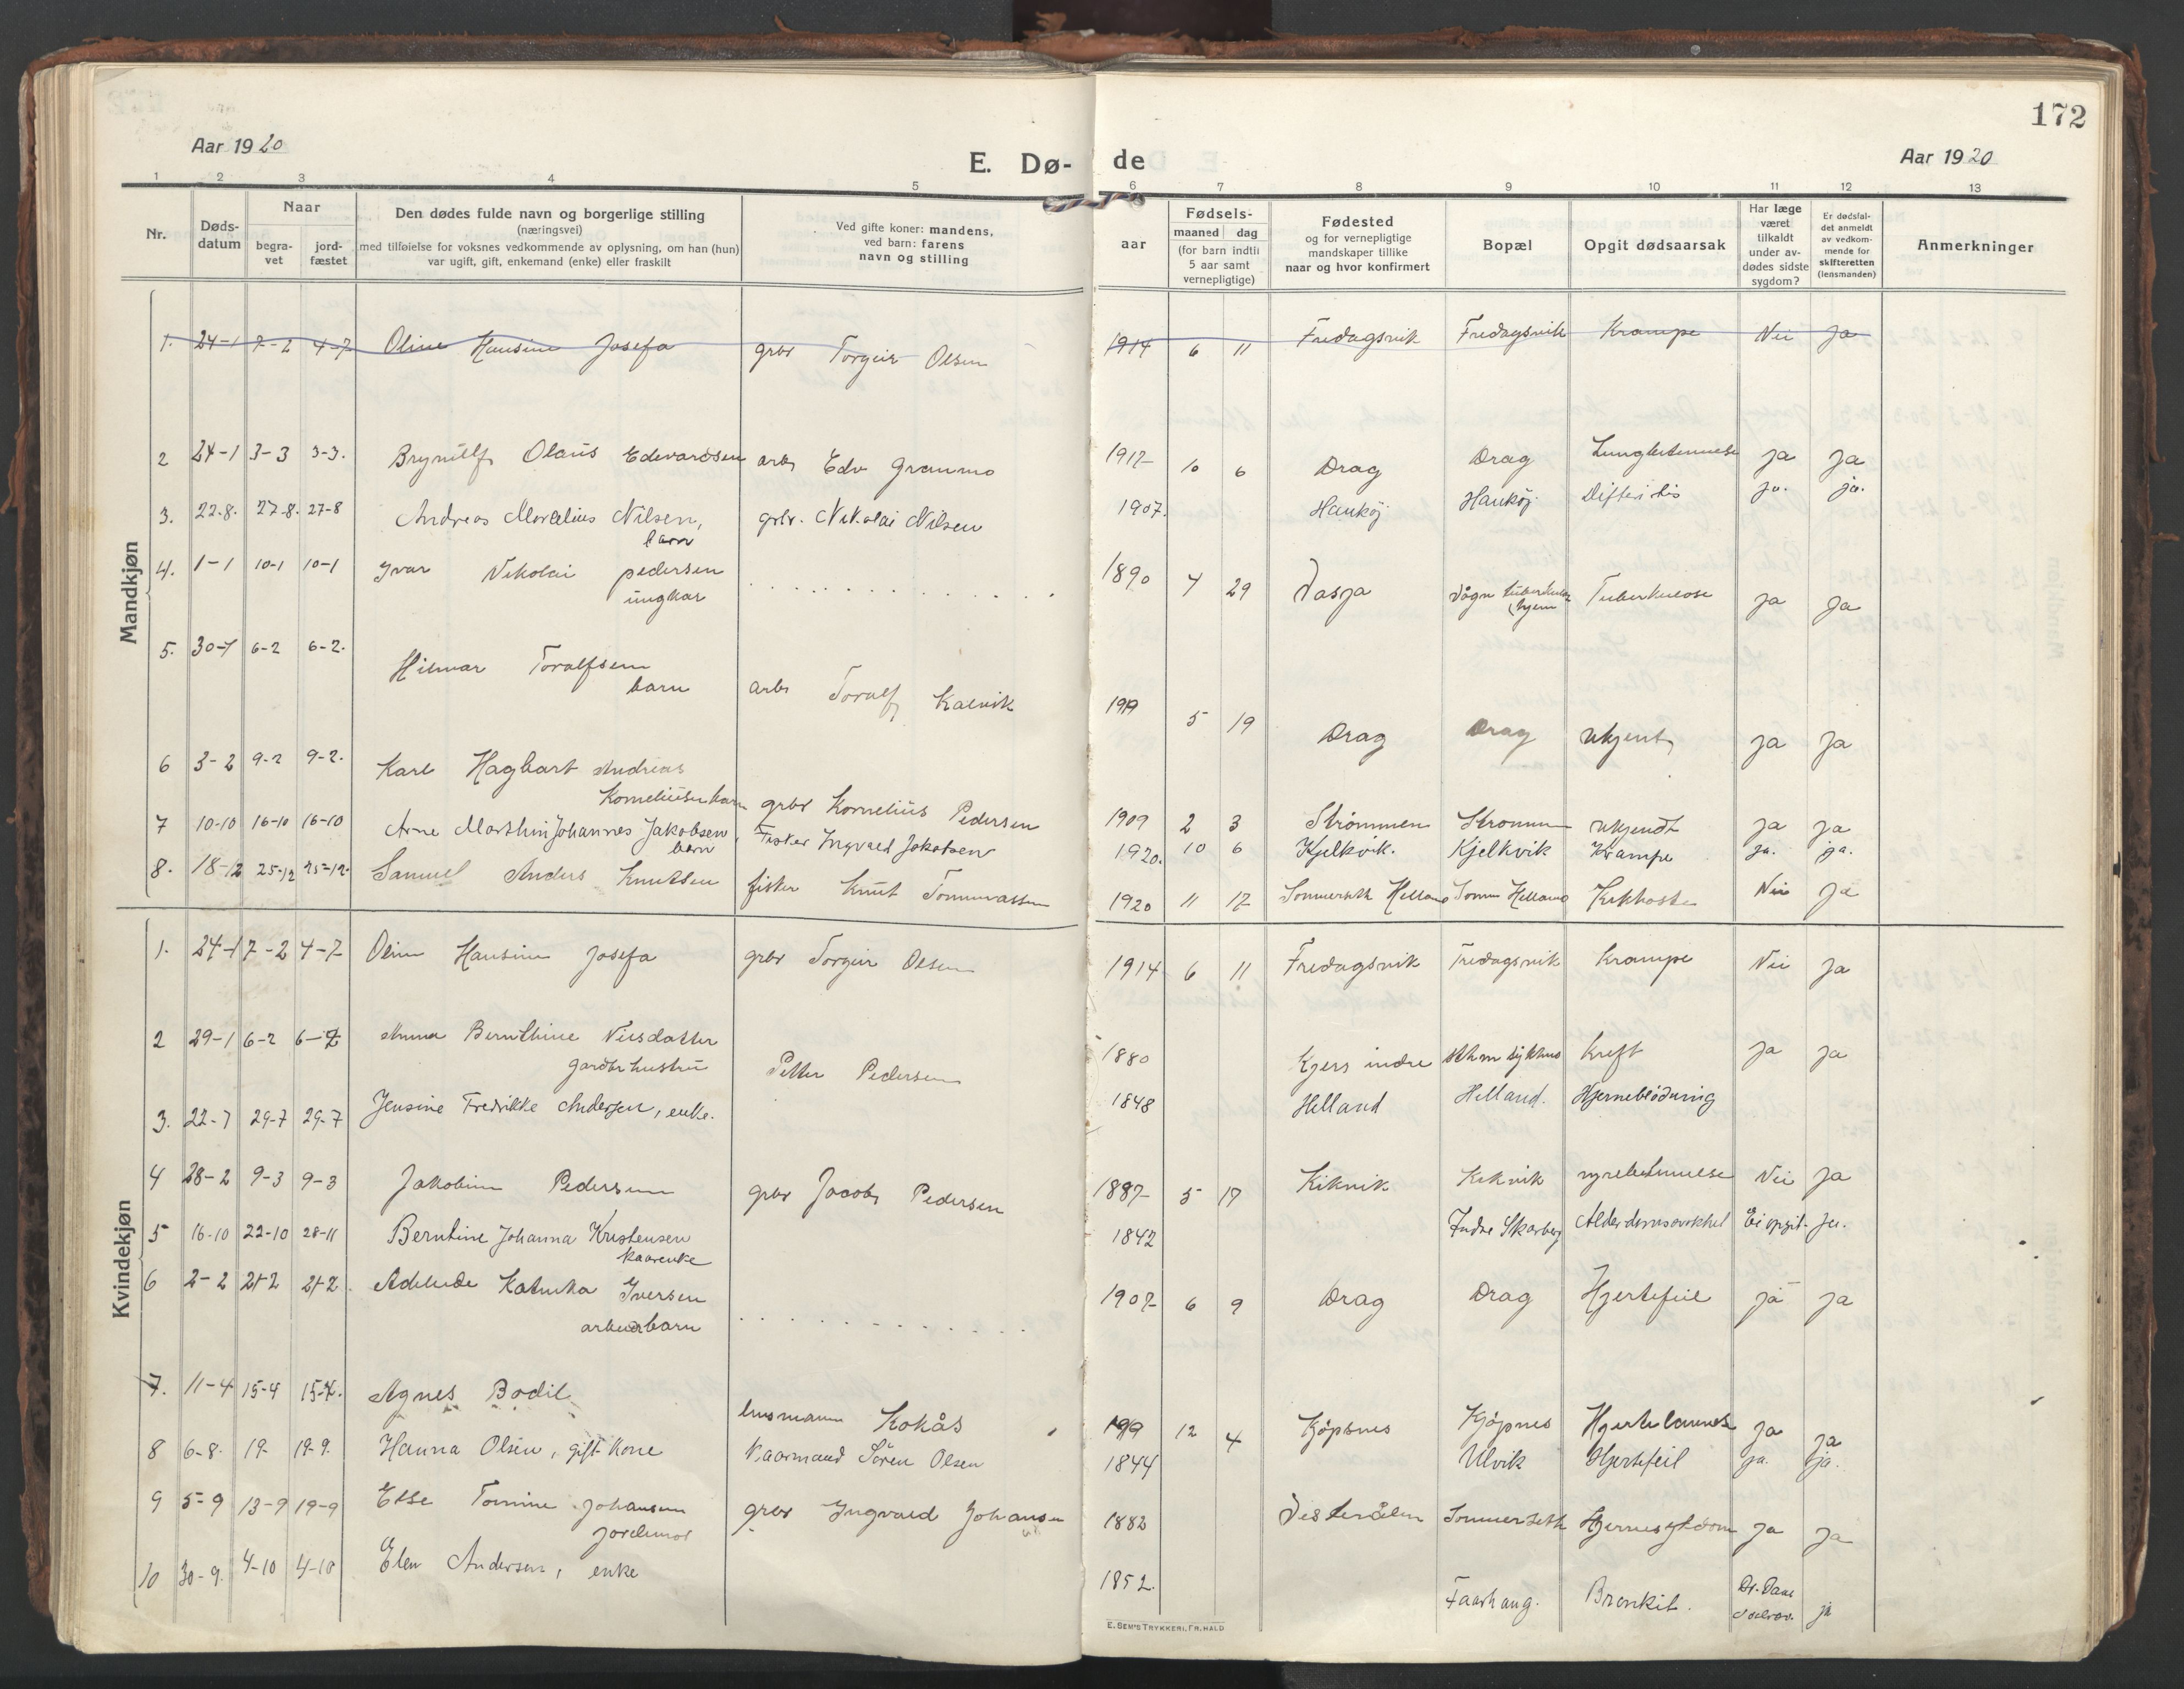 172
Aar 1920
E. Dø-
de
Aar 1920
1 2 3 4 5 6 7 8 9 10 11 12 13
Nr.
Døds-
datum
Naar
begra-
vet
jord-
fæstet
Den dødes fulde navn og borgerlige stilling
(næringsvei)
med tilføielse for voksnes vedkommende av oplysning, om han (hun)
var ugift, gift, enkemand (enke) eller fraskilt
Ved gifte koner: mandens,
ved barn: farens
navn og stilling
aar
Fødsels-
maaned dag
(for barn indtil
5 aar samt
vernepligtige)
Fødested
og for vernepligtige
mandskaper tillike
naar og hvor konfirmert
Bopæl
Opgit dødsaarsak
Har læge
været
tilkaldt
under av-
dødes sidste
sygdom?
Er dødsfal-
det anmeldt
av vedkom-
mende for
skifteretten
(lensmanden)
Anmerkninger
Mandkjøn
1. 24-1 7-2 4-7 Oline Hansine Josefa grbr Torgeir Olsen 1914 6 11 Fredagsvik Fredagsvik Krampe Nei Ja
2 24-1 3-3 3-3. Brynulf Olaus Edevardsen arb Edv Grammo 1917 10 6 Drag Drag Lungbetennelse Ja Ja
3. 22-8. 27-8. 27-8 Andreas Marselius Nilsen, grbr. Nikolai Nilsen 1907. Haukøj Haukøj Difteritis ja. ja.
barn
4. 1-1 10-1 10-1 Ivar Nikolai pedersen 1890 4 29 Vasja Vågn tuberkulose Tuberkulose Ja Ja
ungkar
hjem
5. 30-1 6-2 6-2. Hilmar Toralfsen
barn arb Toralf Kalvik 1919 5 19 Drag Drag ukjent Ja Ja
6 3-2 9-2 9-2. Karl Hagbart Andreas
Korneliusen barn grbr Kornelius Pedersen 1909 2 3 Strømmen Strømmen ukjendt Ja Ja
7 10-10 16-10 16-10 Arne Marthin Johannes Jakobsen, Fisker Ingvald Jakobsen 1920. 10 6 Kjelkvik. Kjelkvik Krampe ja. ja.
barn
8. 18-12 25-12 25-12. Samuel Anders Knutsen fisker Knut Tommassen 1920 11 17 Sommerseth Helland Somm Helland Kikhoste Nei Ja
Kvindekjøn
1. 24-1 7-2 4-7 Oline Hansine Josefa grbr Torgeir Olsen 1914 6 11 Fredagsvik Fredagsvik Krampe Nei Ja
2 29-1 6-2 6-7 Anna Bernthine Nilsdatter
gardbr hustru Petter Pedersen 1880 Kjers indre sthm sykhus Kreft Ja Ja
3. 22-7 29-7 29-7 Jensine Fredrikke Andersen, enke. 1848 Helland Helland. Hjerneblødning
4 28-2 9-3 9-3 Jakobine Pedersen grbr Jacob Pedersen 1887 5 17 Kikvik Kikvik nyrebetennelse Nei Ja
5 16-10 22-10 28-11 Berntine Johanna Kristensen 1842 Indre Skarberg Alderdomssvakhet Ei opgit. Ja.
kaarenke
6 2-2 21-2 21-2. Adelude Katinka Iversen 1907 6 9 Drag Drag Hjertefeil Ja Ja
arbeider barn
7. 11-4 15-4 15-4. Agnes Bodil
lensmann Kokås 1919 12 4 Kjøpsnes Kjøpnes Hjertelammelse Ja Ja
8 6-8. 19- 19-9. Hanna Olsen, gift Kone Kaarmand Søren Olsen 1844 Ulvik Hjertefeil ja. ja.
9 5-9 13-9 19-9 Else Tomine Johansen grbr Ingvald Johansen 1882 Vesterålen Sommerseth Hjernesykdom Ja Ja
jordemor
10 30-9. 4-10 4-10 Elen Andersen, enke 1852. Faarhaug. Bronkit. Dr. Daae ja